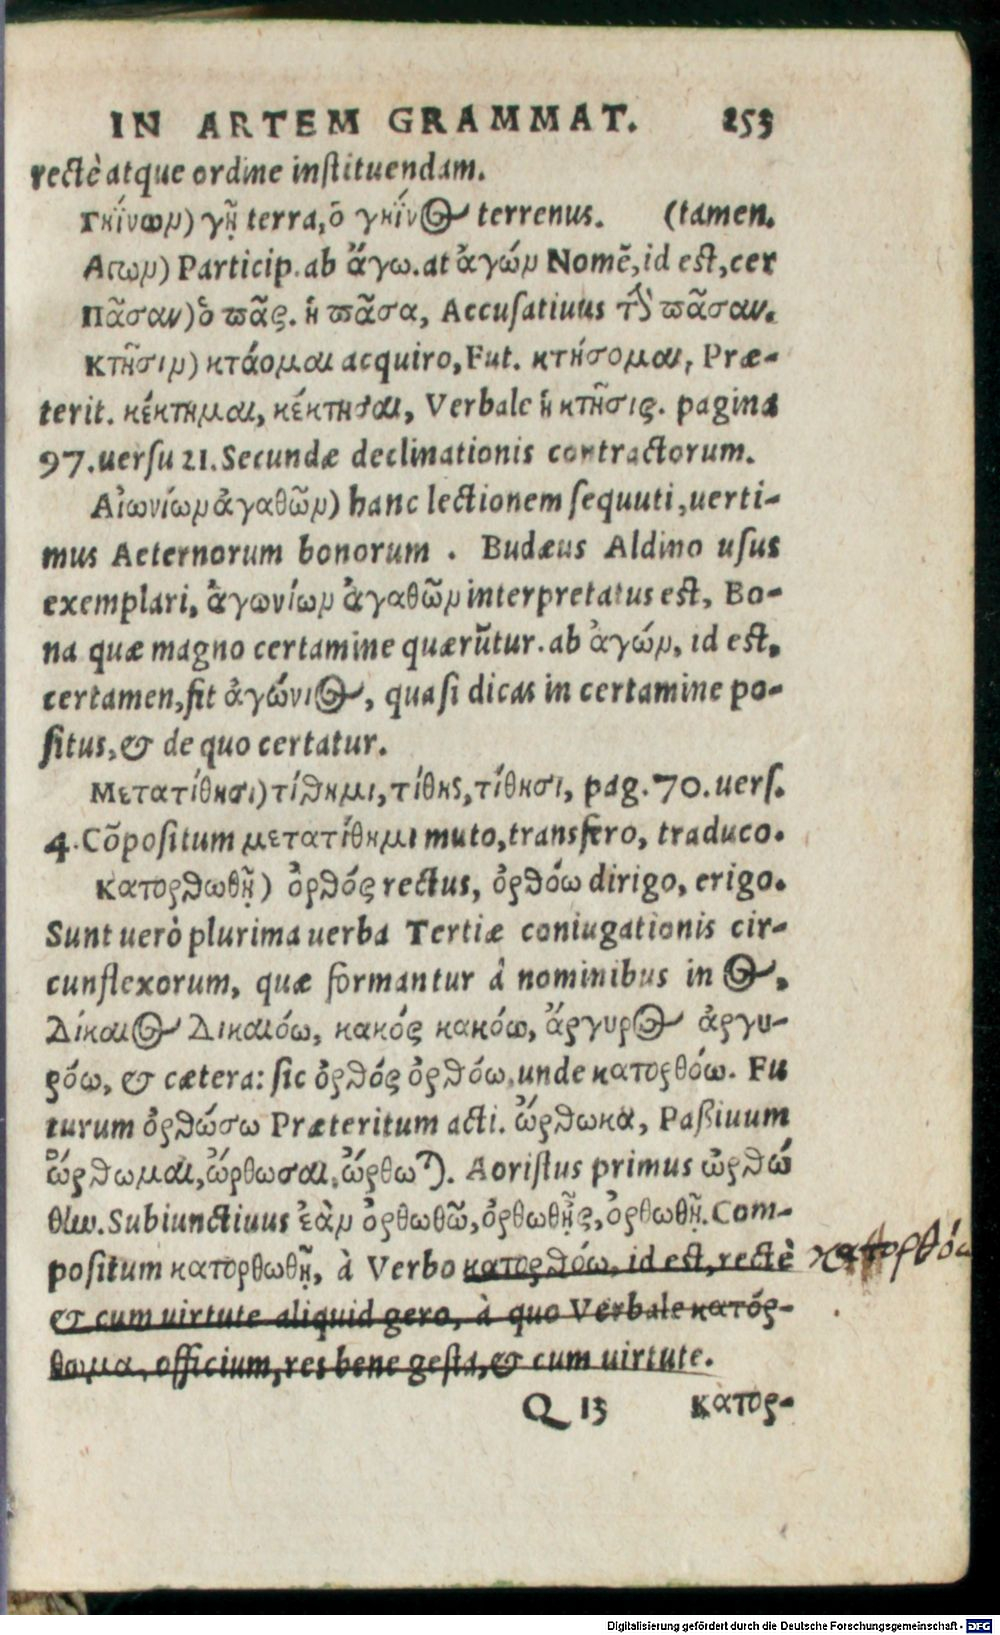 IN ARTEM GRAMMAT. 253
rectè atque ordine instituendam.
Γηΐνων) γῆ terra, ὁ γηΐνος terrenus. (tamen.
Αγων) Particip. ab ἄγω. at ἀγών Nomē, id est, cer
Πᾶσαν) ὁ πᾶς. ἡ πᾶσα, Accusatiuus τὴν πᾶσαν.
Κτῆσιν) κτάομαι acquiro, Fut. κτήσομαι, Præ-
terit. κέκτημαι, κέκτησαι, Verbale ἡ κτῆσις. pagina
97. uersu 21. Secundæ declinationis contractorum.
Αἰωνίων ἀγαθῶν) hanc lectionem sequuti, uerti-
mus Aeternorum bonorum . Budæus Aldino usus
exemplari, ἀγωνίων ἀγαθῶν interpretatus est, Bo-
na quæ magno certamine quærūtur. ab ἀγών, id est,
certamen, fit ἀγώνιος, quasi dicas in certamine po-
situs, & de quo certatur.
Μετατίθησι) τίθημι, τίθης, τίθησι, pag. 70. uers.
4. Cōpositum μετατίθημι muto, transfero, traduco.
Κατορθωθῇ) ὀρθός rectus, ὀρθόω dirigo, erigo.
Sunt uerò plurima uerba Tertiæ coniugationis cir-
cunflexorum, quæ formantur à nominibus in ος,
Δίκαιος Δικαιόω, κακός κακόω, ἄργυρος ἀργυ-
ρόω, & cætera: sic ὀρθός ὀρθόω, unde κατορθόω. Fu
turum ὀρθώσω Præteritum acti. ὤρθωκα, Paßiuum
ὤρθωμαι, ὤρθωσαι, ὤρθωται. Aoristus primus ὠρθώ
θην. Subiunctiuus ἐὰν ὀρθωθῶ, ὀρθωθῇς, ὀρθωθῇ. Com-
positum κατορθωθῇ, à Verbo κατορθόω, id est, rectè κατορθόω
& cum uirtute aliquid gero, à quo Verbale κατόρ-
θωμα, officium, res bene gesta, & cum uirtute.
Q 13 κατορ-
Digitalisierung gefördert durch die Deutsche Forschungsgemeinschaft - DFG